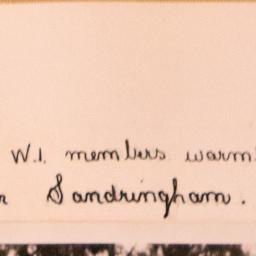 W.I. members warm
Sandringham.